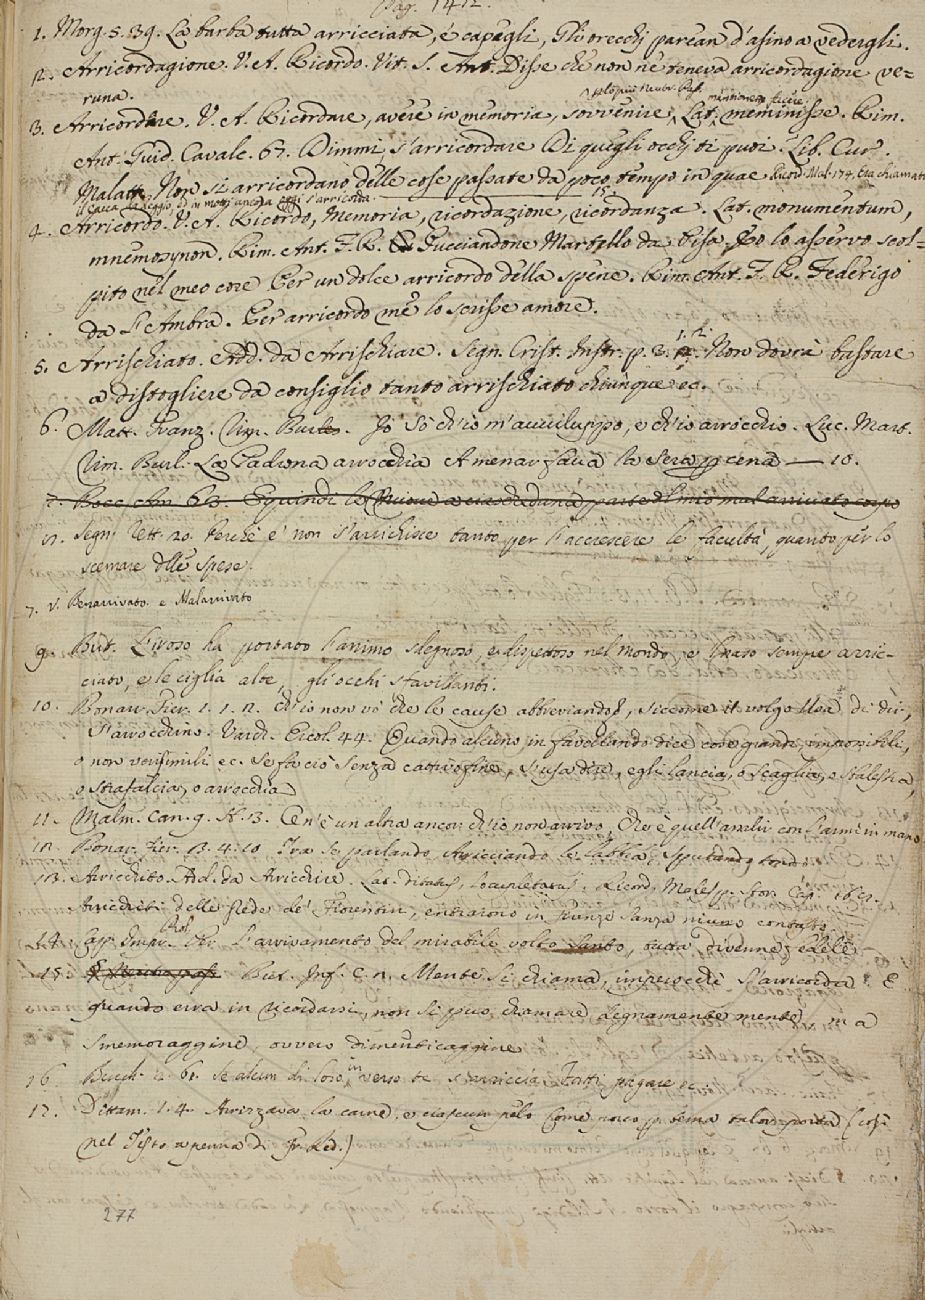 Pag. 1412.
1. Morg. 5. 39. La barba tutta arricciata, e capegli, Gli orecchj parean d'asino a vedergli.
2. Arricordagione. V. A. Ricordo. Vit. S. Ant. Disse che non ne teneva arricordagione ve=
runa.
3. Arricordare. V. A. Ricordare, avere in memoria, sovvenire. Lat. meminisse. Rim.
Ant. Guid. Cavalc. 67. Dimmi, s'arricordare Di quegli occhj ti puoi. Lib. Cur.
Malatt. Non si arricordano delle cose passate da poco tempo in quae
4. Arricordo. V. A. Ricordo, Memoria, ricordazione, ricordanza. Lat. monumentum,
mnemosynon. Rim. Ant. F. R. Gucciandone Martello da Pisa. Eo lo asservo scol=
pito nel meo core Per un dolce arricordo della spene. Rim. Ant. F. R. Federigo
da S. Ambra. Per arricordo me lo scrisse amore.
5. Arrischiato. Add. da Arrischiare. Segn. Crist. Instr. p. 3. 1. 12. Non dovrà bastare
a distogliere da consiglio tanto arrischiato chiunque ec.
6. Matt. Franz. Rim. Burl. Io so ch'io m'avviluppo, e ch'io arrocchio. Luc. Mart.
Rim. Burl. La Padrona arrocchia A menar fava la sera p cena — 10.
7. Bocc. Am. 63. E quindi le
Segn. Lett. 20. Perchè e' non s'arrichisce tanto per l'accrescere le facultà, quanto per lo
scemare delle spese.
7. V. Benarrivato e Malarrivato
9. But. L'iroso ha portato l'animo sdegnoso, e dispettoso nel mondo, e l naso sempre arric-
ciato, e le ciglia alte, gli occhi sfavillanti.
10. Bonar. Fier. 1. 1. 2. Ch'io non vò che le cause abbreviando, siccome il volgo usa di dir,
s'arrocchino. Varch. Ercol. 44. Quando alcuno in favellando dice cose grandi, impossibili,
o non verisimili ec. se fa ciò senza cattivo fine, s'usa dire, egli lancia, o scaglia, e sbalestra,
o strafalcia, o arrocchia
11. Malm. Can. 9. St. 3. Ce n'è un altra ancor ch'io non arrivo, Che è quell'andar con l'armi in mano
12. Bonar. Fier. 3. 4. 10 Tra se parlando Arricciando le labbia, sputando tondo.
13. Arricchito. Ad. da Arricchire. Lat. ditatus, locupletatus. Ricord. Malesp. Stor. Cap. 162.
Arricchiti delle prede de' Fiorentini, entrarono in Firenze sanza niuno contasto
14. Capp. Impr. Prol. Per l'arrivamento del mirabile volto santo, tutta divenne fedele
15. But. Inf. C. 2. Mente si chiama, imperocchè s'arricorda. E
quando erra in ricordarsi, non si può chiamare degnamente mente, ma
smemoraggine, ovvero dimenticaggine
16. Burch. 2. 61. Se alcun di loro in verso te s'arriccia, Fatti pagare ec.
17. Dittam. 1. 4. Arrizzava la carne, e ciascun pelo Come porco p tema talor porta (così
nel Testo a penna di Fr. Red.)
277